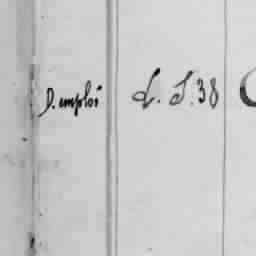 D. emploi L. T. 38